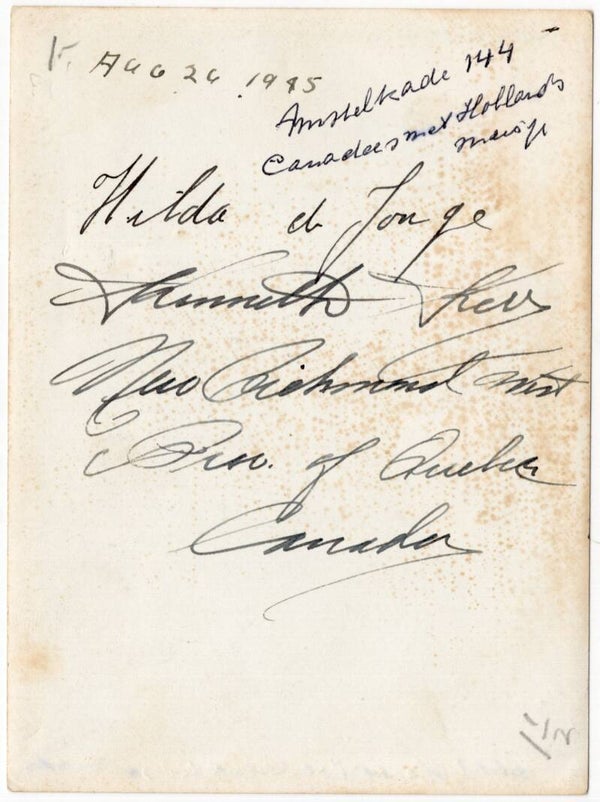 Aug 26 1945
Amstelkade 144
Canadees met Hollands
meisje
Hilda de Jonge
Kenneth Kerr
New Richmond West
Prov. of Quebec
Canada